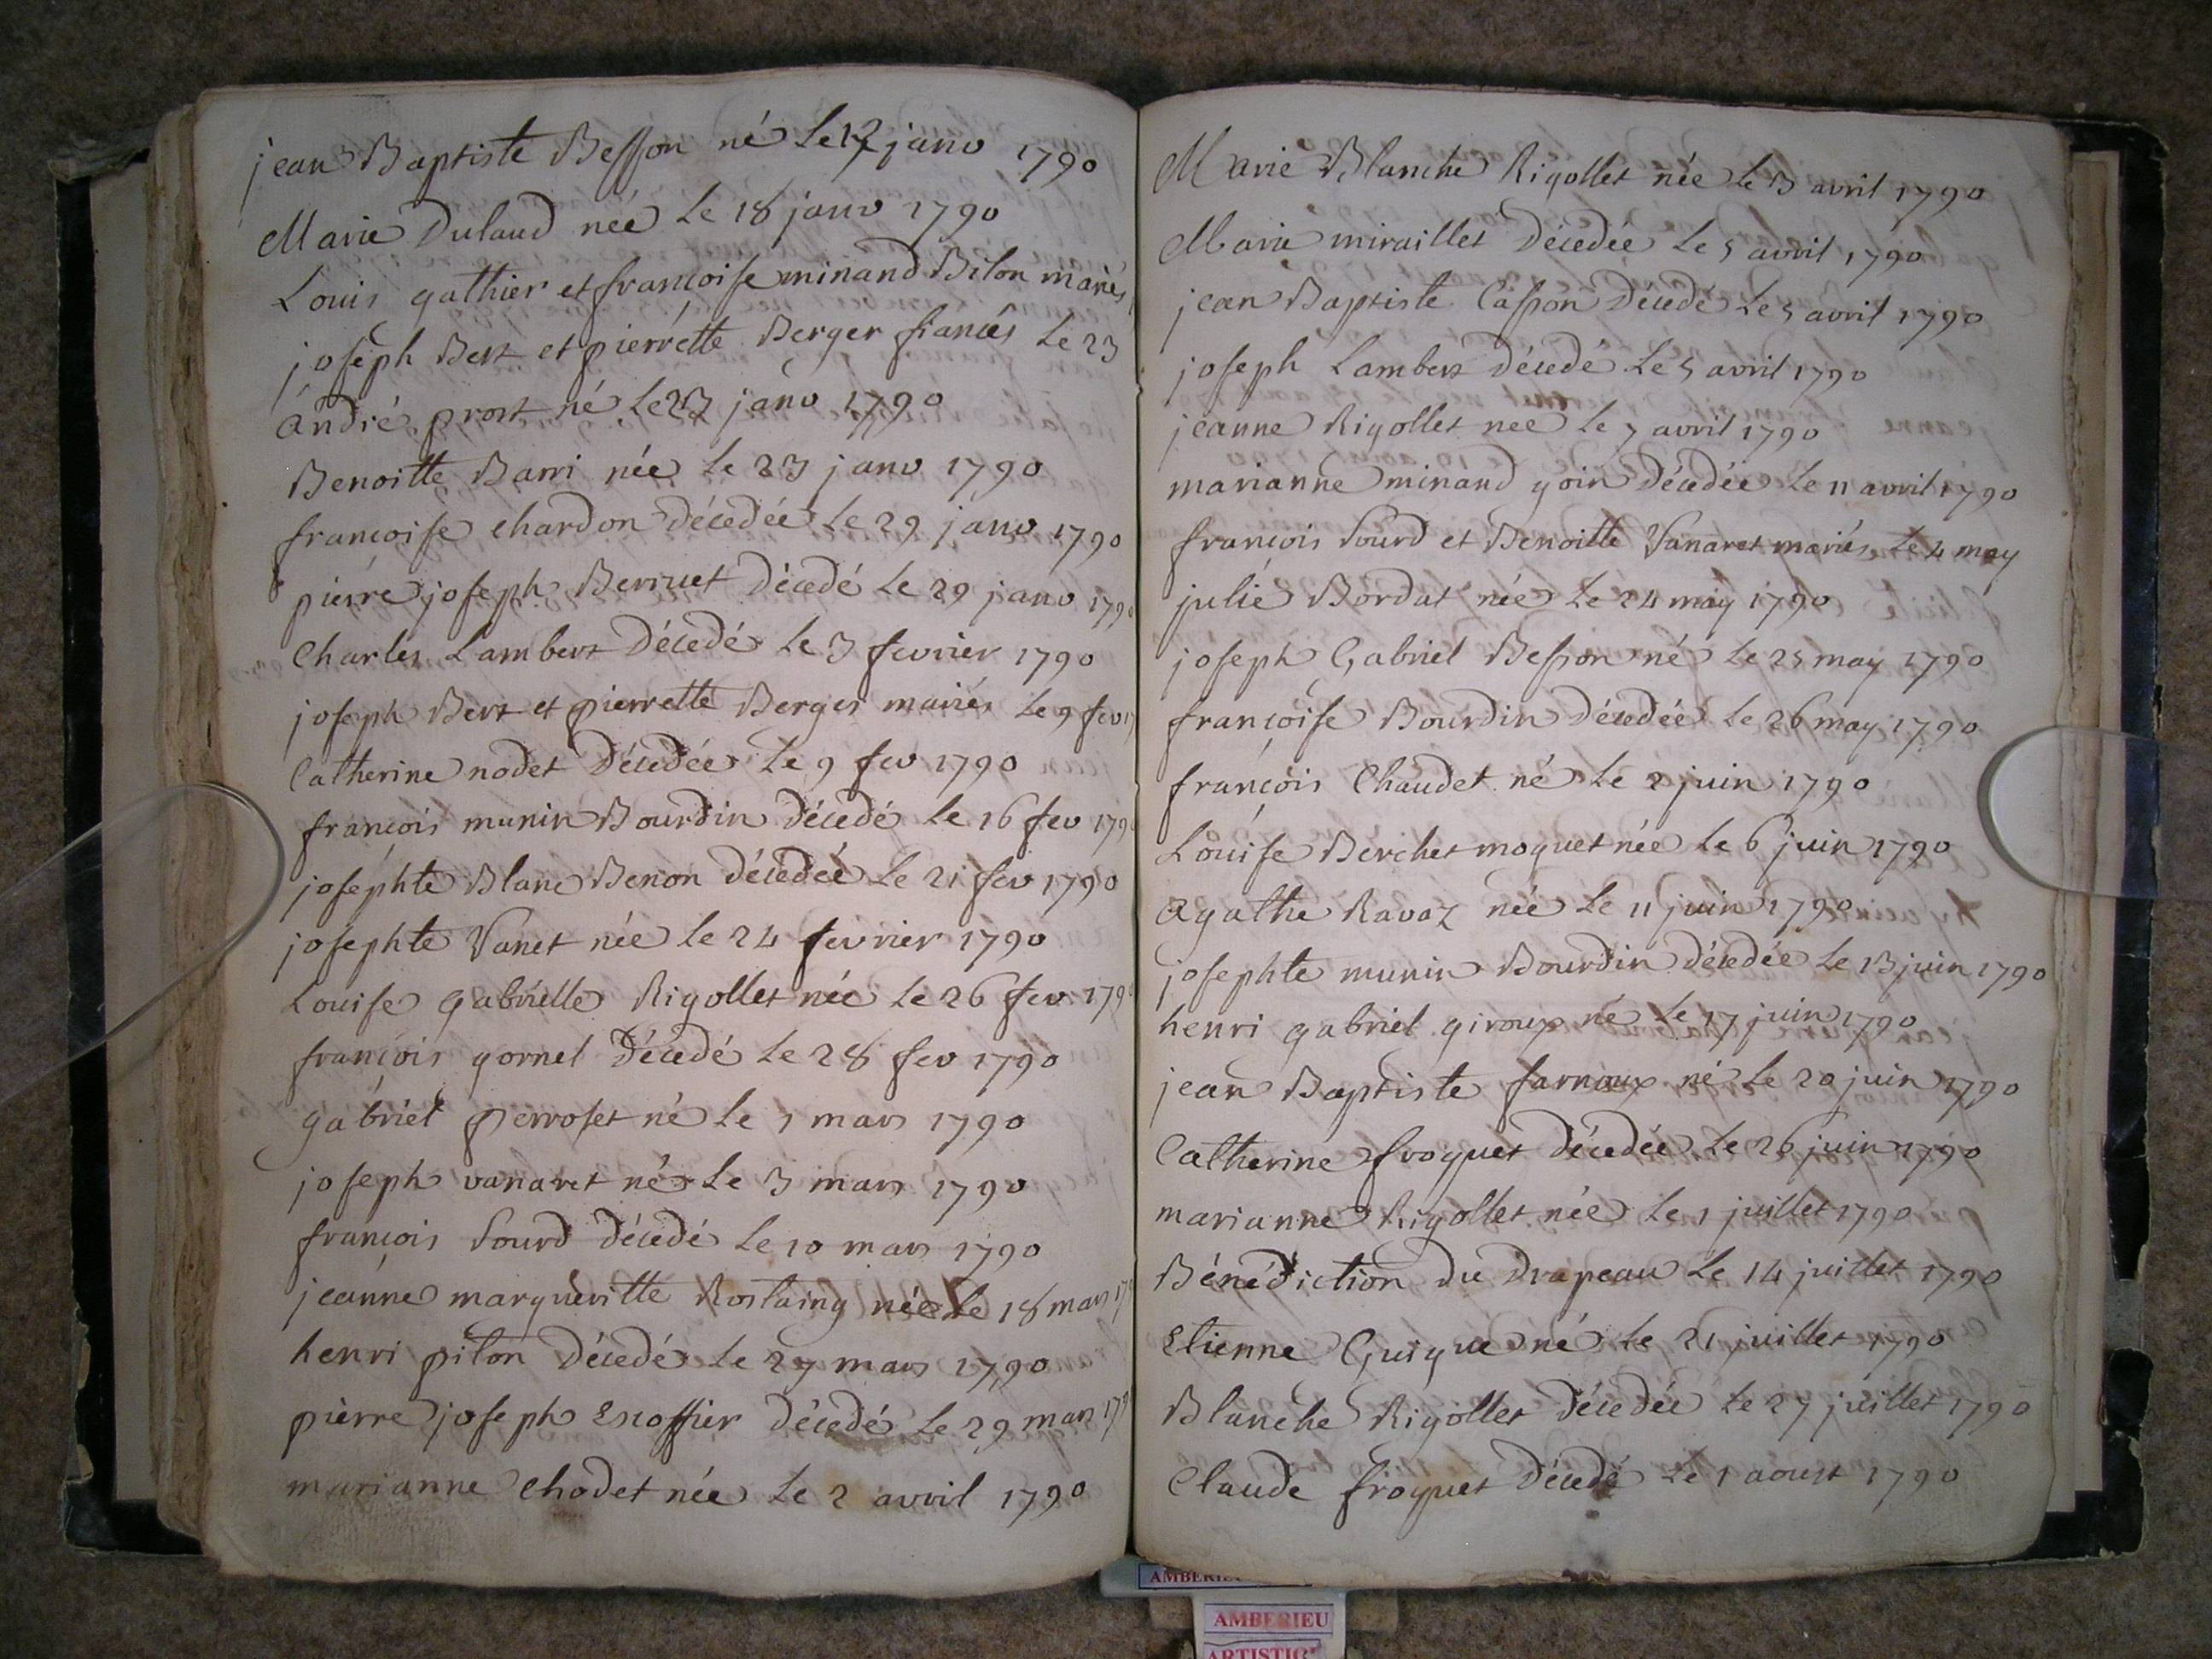 jean Baptiste Besson né Le 17 janv 1790
Marie Dulaud née Le 18 janv 1790
Louis gathier et françoise minand Bilon mariés
joseph Bert et pierrette Berger fiancés Le 23
André prost né Le 23 janv 1790
Benoitte Barri née Le 23 janv 1790
françoise chardon Décedée Le 29 janv 1790
pierre joseph Berruet Décedé Le 29 janv 1790
Charles Lambert Décedé Le 3 fevrier 1790
joseph Bert et pierrette Berger mariés Le 9 fev 17
Catherine nodet Décedée Le 9 fev 1790
françois munin Bourdin Décedé Le 16 fev 1790
josephte Blanc Benon Décedée Le 21 fev 1790
josephte Vanet née Le 24 fevrier 1790
Louise gabrielle Rigollet née Le 26 fev 1790
françois gornel Décedé Le 28 fev 1790
gabriel perroset né Le 1 mars 1790
joseph vanaret né Le 3 mars 1790
françois Sourd Décedé Le 10 mars 1790
jeanne margueritte Rostaing née Le 18 mars 179
henri pilon Décedé Le 27 mars 1790
pierre joseph Escoffier Décedé Le 29 mars 179
marianne Chodet née Le 2 avril 1790
Marie Blanche Rigollet née Le 3 avril 1790
Marie miraillet Décedée Le 5 avril 1790
jean Baptiste Casson Décedé Le 5 avril 1790
joseph Lambert Décedé Le 5 avril 1790
jeanne Rigollet née Le 7 avril 1790
marianne minand goin Décedée Le 11 avril 1790
françois Sourd et Benoitte Vanaret mariés Le 4 may
julie Bordat née Le 24 may 1790
joseph Gabriel Besson né Le 25 may 1790
françoise Bourdin Décedée Le 26 may 1790
françois Chaudet né Le 2 juin 1790
Louise Berchet moquet née Le 6 juin 1790
Agathe Ravaz née Le 11 juin 1790
josephte munin Bourdin Décedée Le 13 juin 1790
henri gabriel giroux né Le 17 juin 1790
jean Baptiste farnoux né Le 20 juin 1790
Catherine froquet Décedée Le 26 juin 1790
marianne Rigollet née Le 1 juillet 1790
Bénédiction Du Drapeau Le 14 juillet 1790
Etienne Guigue né Le 21 juillet 1790
Blanche Rigollet Décedée Le 27 juillet 1790
Claude froquet Décedé Le 1 aoust 1790
AMBERIEU